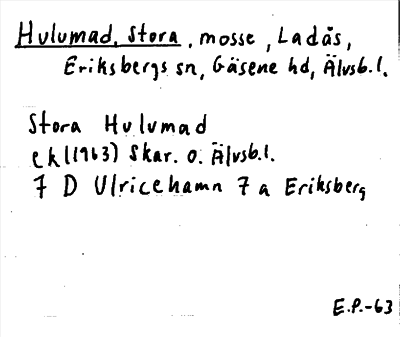 Hulumad, Stora, mosse, Ladås,
Eriksbergs sn, Gäsene hd, Älvsb.l.
Stora Hulumad
ek (1963) Skar. o. Älvsb.l.
7 D Ulricehamn 7 a Eriksberg
E.P.-63